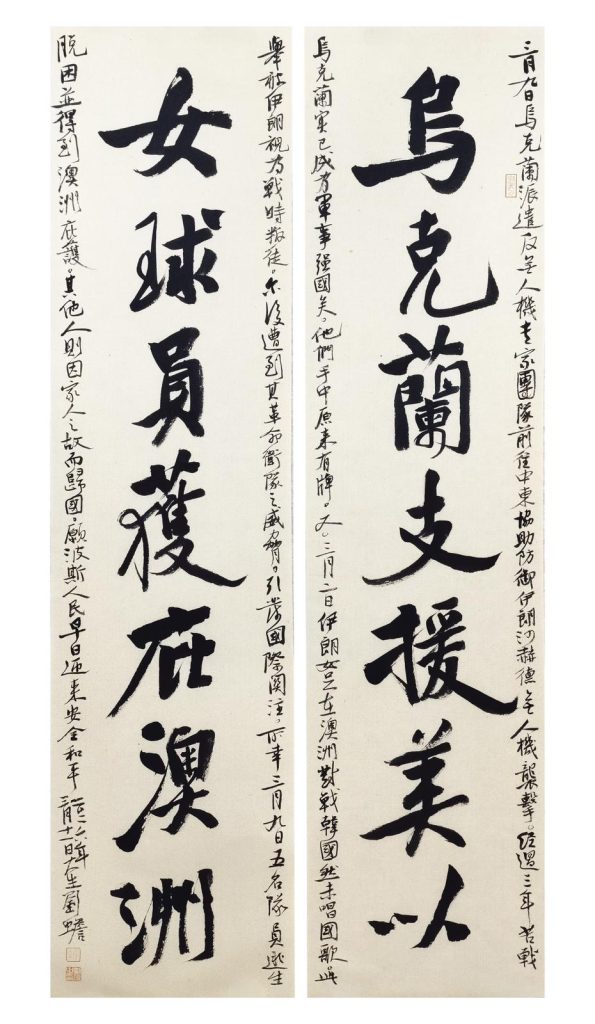 三月九日烏克蘭派遣反無人機專家團隊前往中東協助防御伊朗沙赫德無人機襲擊。經過三年苦戰
烏克蘭支援美以
烏克蘭実已成為軍事强國矣。他們手中原来有牌。又。三月二日伊朗女足在澳洲對戰韓國然未唱國歌此
舉被伊朗視為戰時叛徒。尔後遭到其革命衛隊之威脅。引發國際関注。所幸三月九日五名隊員逃生
女球員獲庇澳洲
脱困並得到澳洲庇護。其他人則因家人之故而歸國。願波斯人民早日迎来安全和平
二〇二六年三月十一日大生